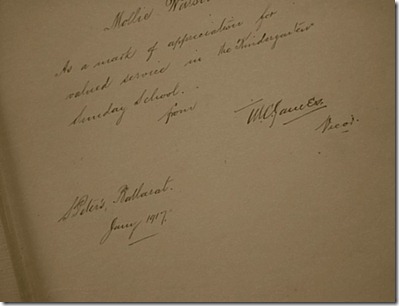 Mollie
As a mark of appreciation for
valued service in the Kindergarten
Sunday School.
from
Vicar.
St Peter's, Ballarat.
Jany 1917.